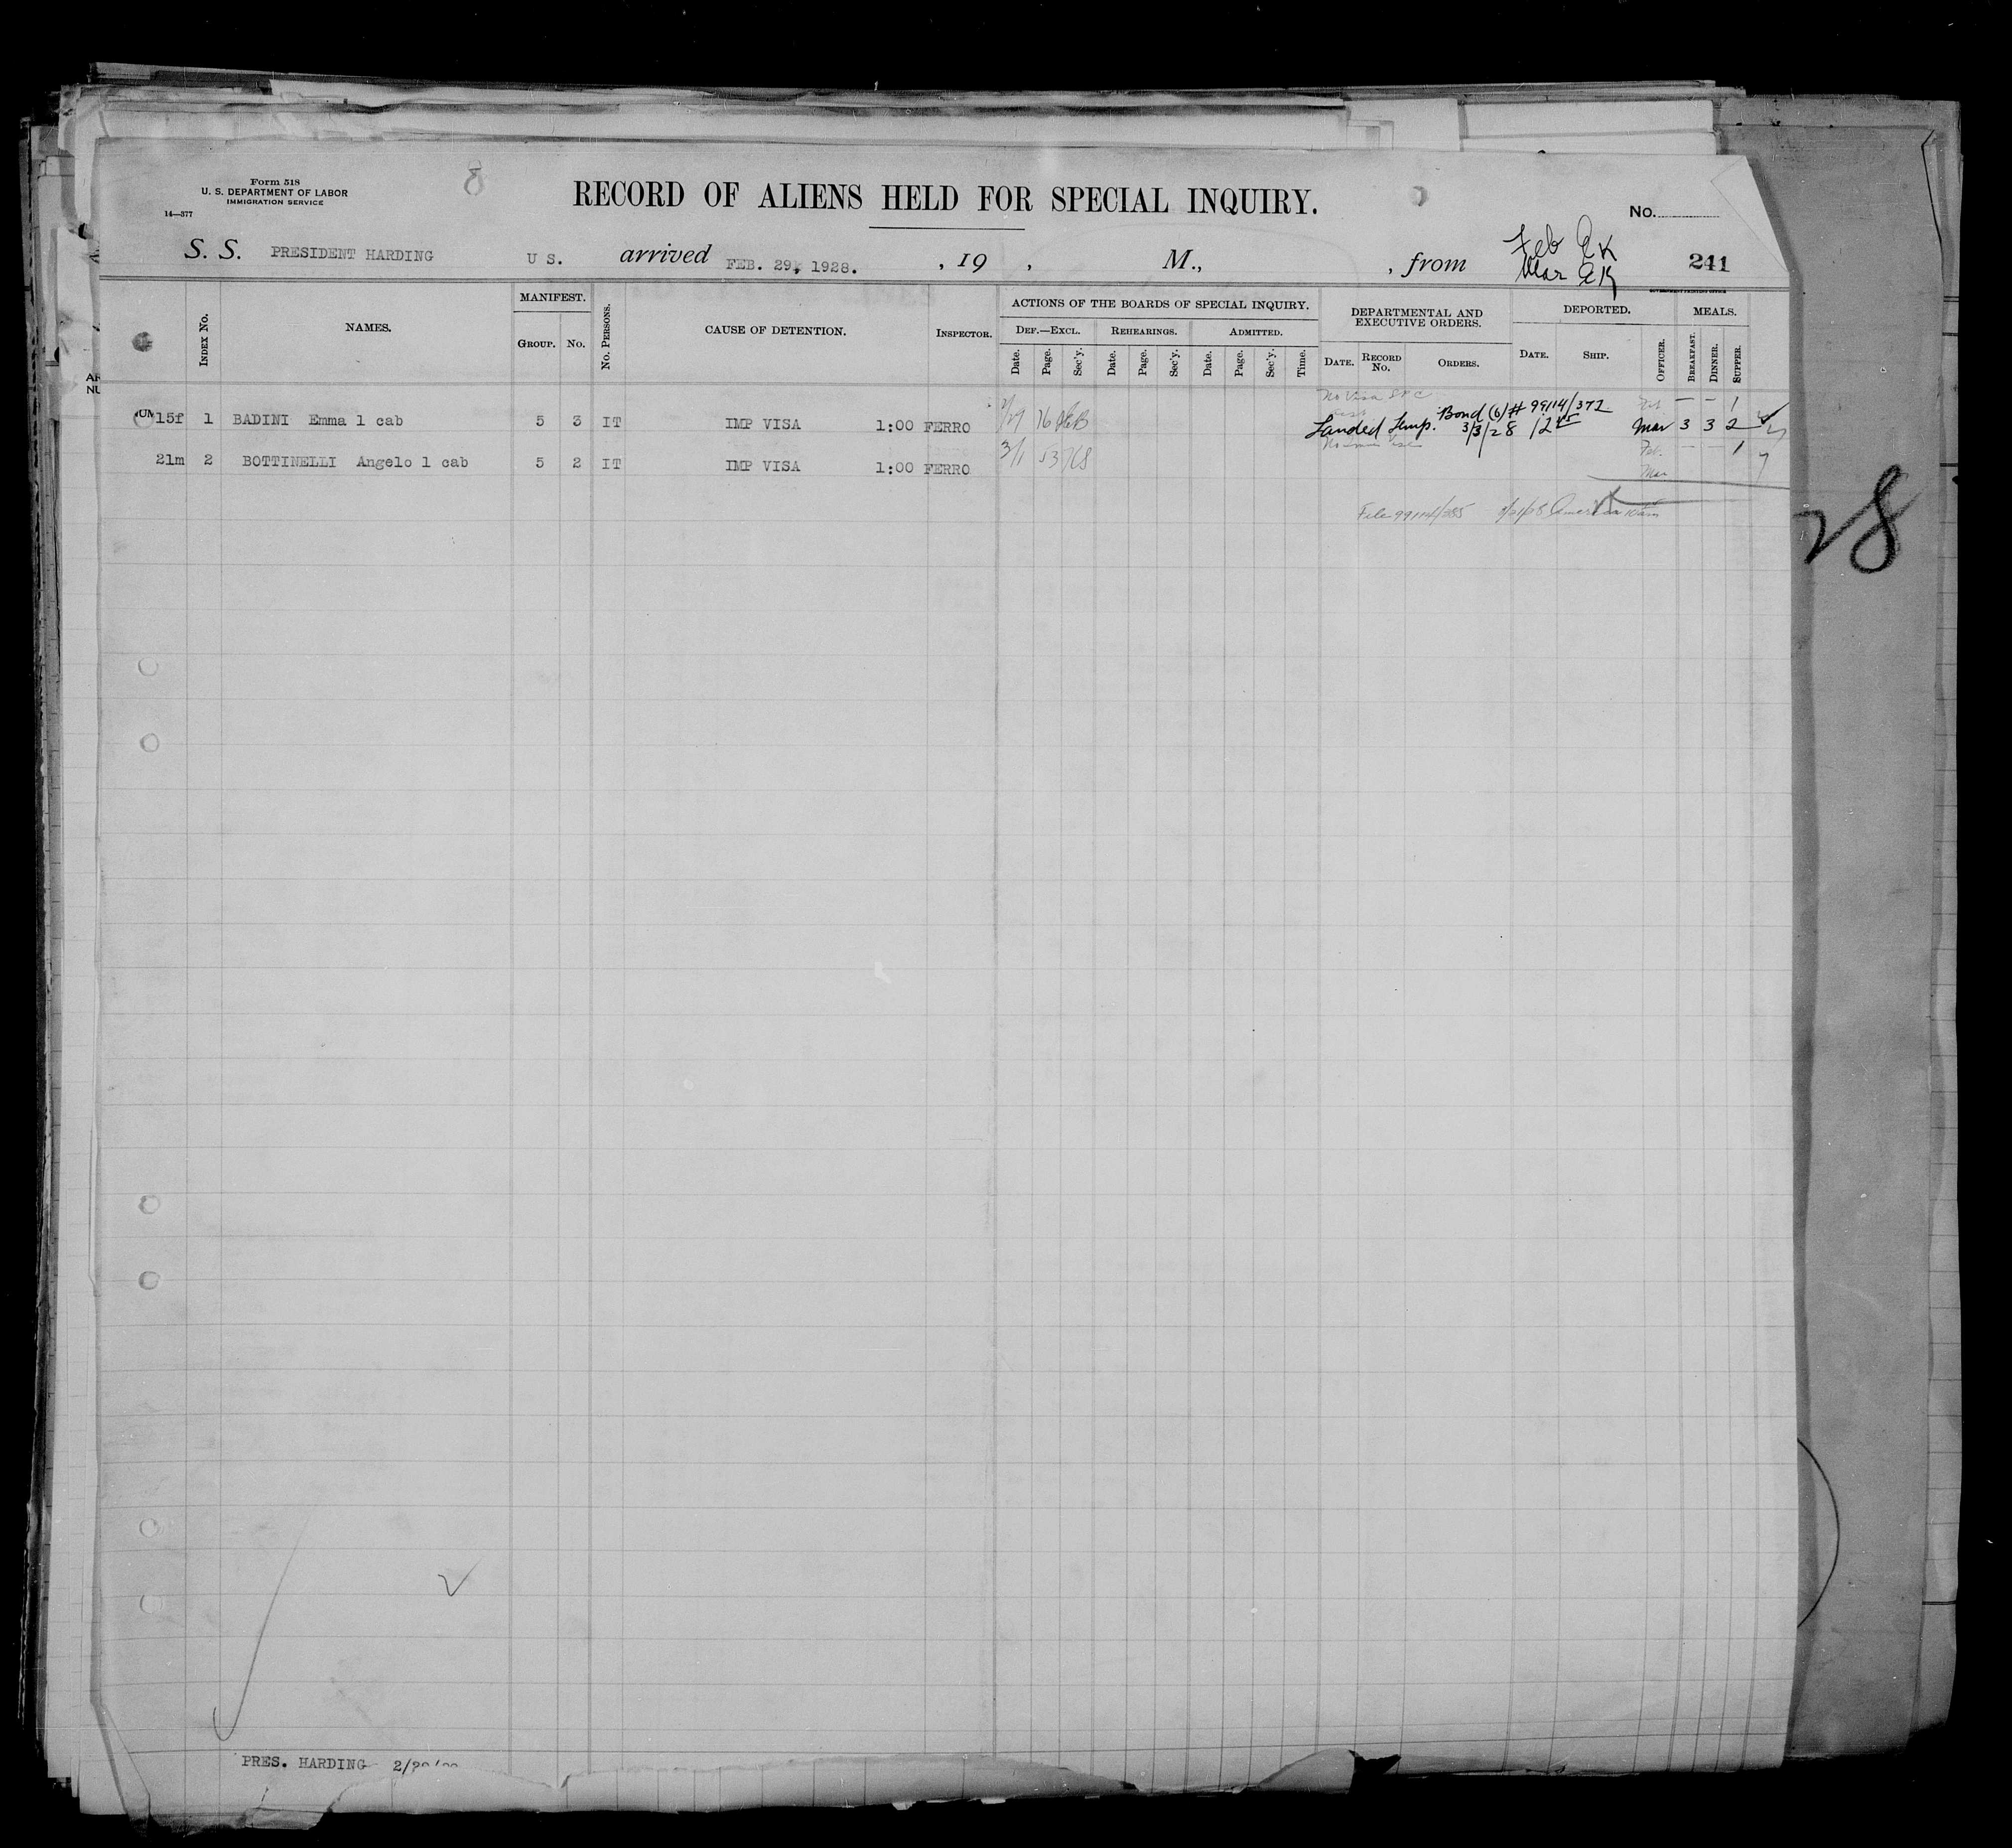 Form 518
U. S. DEPARTMENT OF LABOR
IMMIGRATION SERVICE
14—377
8
RECORD OF ALIENS HELD FOR SPECIAL INQUIRY.
No.
S. S. PRESIDENT HARDING U S. arrived FEB. 29, 1928. , 19 , M., , from 241
Feb EK
Mar EK
GOVERNMENT PRINTING OFFICE
INDEX No.
NAMES.
MANIFEST.
GROUP. No.
No. PERSONS.
CAUSE OF DETENTION.
INSPECTOR.
ACTIONS OF THE BOARDS OF SPECIAL INQUIRY.
DEF.—EXCL. REHEARINGS. ADMITTED.
Date. Page. Sec'y. Date. Page. Sec'y. Date. Page. Sec'y. Time.
DEPARTMENTAL AND
EXECUTIVE ORDERS.
DATE. RECORD No. ORDERS.
DEPORTED.
DATE. SHIP.
OFFICER.
MEALS.
BREAKFAST. DINNER. SUPPER.
No Visa
Bond (6) # 99114/372
Feb — — 1
15f 1 BADINI Emma 1 cab 5 3 IT IMP VISA 1:00 FERRO 16 Landed Temp. 3/3/28 Mar 3 3 2
21m 2 BOTTINELLI Angelo 1 cab 5 2 IT IMP VISA 1:00 FERRO 3/1 53 Feb. — 1
Mar
File 99114/385 America
28
PRES. HARDING 2/